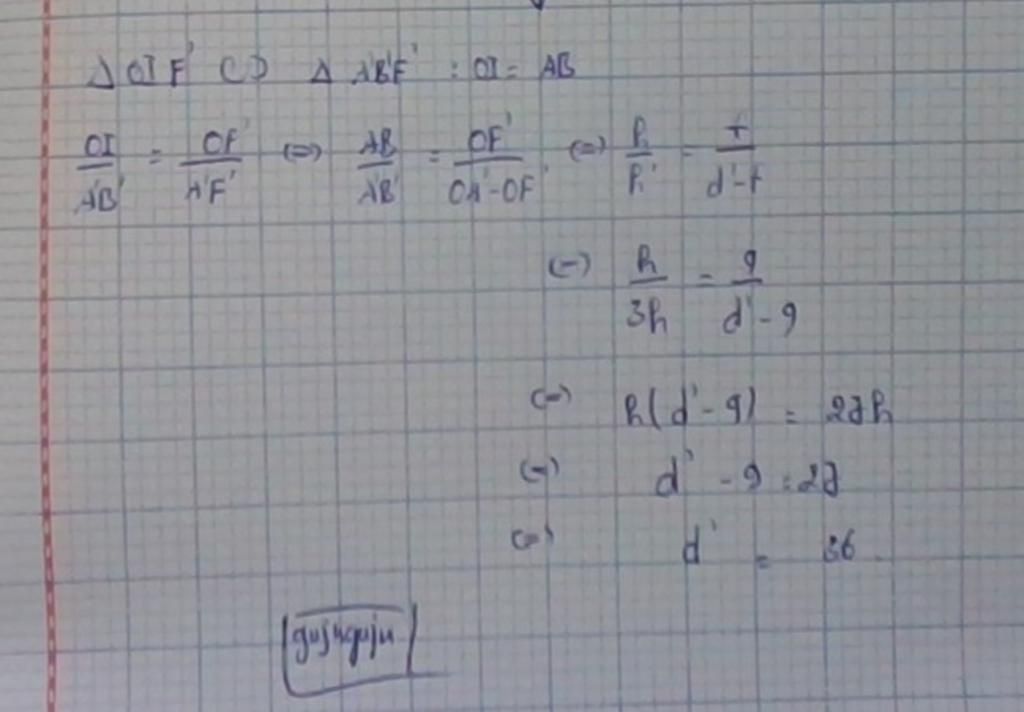 Δ OIF' ∽ Δ A'B'F' : OI = AB
OI/A'B' = OF'/A'F' (=) AB/A'B' = OF'/OA'-OF' (=) h/h' = f/d'-f
(=) h/3h = 9/d'-9
(=) h(d'-9) = 27h
(=) d' - 9 = 27
(=) d' = 36